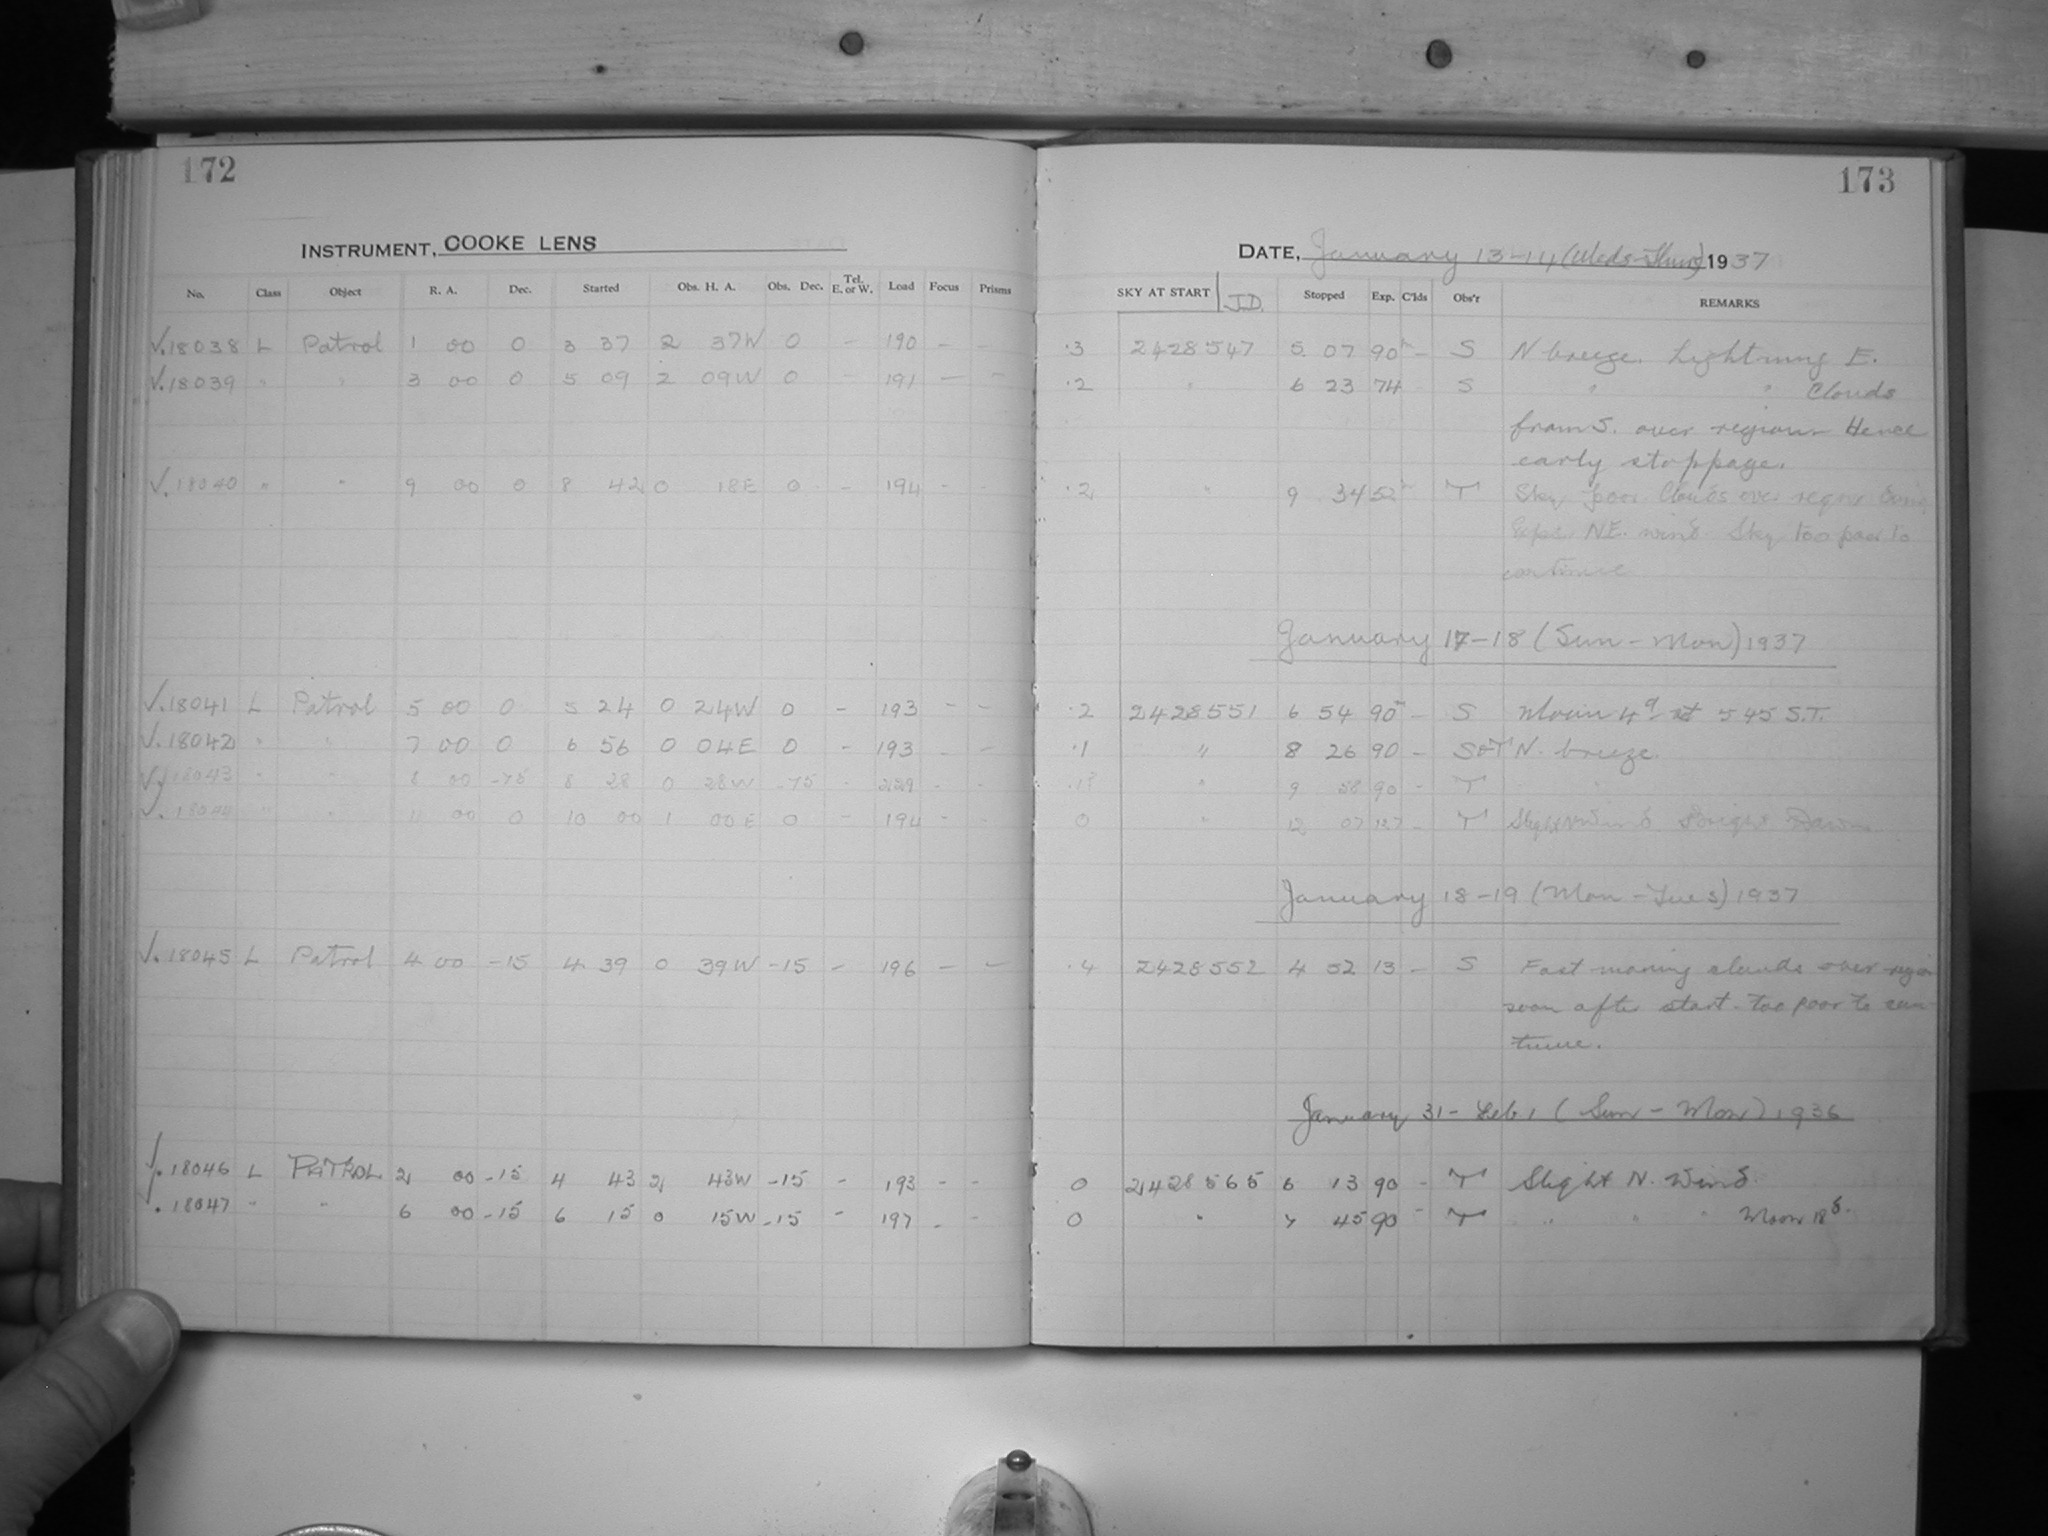 172
INSTRUMENT, COOKE LENS
No. Class Object R. A. Dec. Started Obs. H. A. Obs. Dec. Tel. E. or W. Load Focus Prisms
√.18038 L Patrol 1 00 0 3 37 2 37W 0 – 190 – –
√.18039 " " 3 00 0 5 09 2 09W 0 – 191 – –
√.18040 " " 9 00 0 8 42 0 18E 0 – 194 – –
√.18041 L Patrol 5 00 0 5 24 0 24W 0 – 193 – –
√.18042 " " 7 00 0 6 56 0 04E 0 – 193 – –
√.18043 " " 8 00 -75 8 28 0 28W -75 – 229 – –
√.18044 " " 11 00 0 10 00 1 00E 0 – 194 – –
√.18045 L Patrol 4 00 -15 4 39 0 39W -15 – 196 – –
√.18046 L PATROL 2 00 -15 4 43 2 43W -15 – 193 – –
.18047 " " 6 00 -15 6 15 0 15W -15 – 197 – –
173
DATE, January 13-14 (Weds-Thurs) 1937
SKY AT START J.D. Stopped Exp. C'lds Obs'r REMARKS
.3 2428547 5 07 90m – S N breeze. Lightning E.
.2 " 6 23 74 S " " Clouds
from S. over region. Hence
early stoppage.
.2 " 9 34 52m T Sky poor Clouds over region
Expo. N.E. wind. Sky too poor to
continue
January 17-18 (Sun-Mon) 1937
.2 2428551 6 54 90m – S Moon 4d at 5 45 S.T.
.1 " 8 26 90 – S&T N. breeze.
.1? " 9 58 90 – T "
0 " 12 07 127 – T Slight N Wind Bright Dawn
January 18-19 (Mon-Tues) 1937
.4 2428552 4 52 13 – S Fast moving clouds over region
soon after start - too poor to con-
tinue.
January 31- Feb. 1 (Sun-Mon) 1936
0 2428565 6 13 90 – T Slight N. Wind.
0 " 7 45 90 – T " " " Moon 18d.